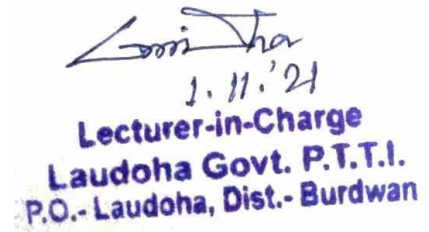 1.11.'21
Lecturer-in-Charge
Laudoha Govt. P.T.T.I.
P.O.- Laudoha, Dist.- Burdwan